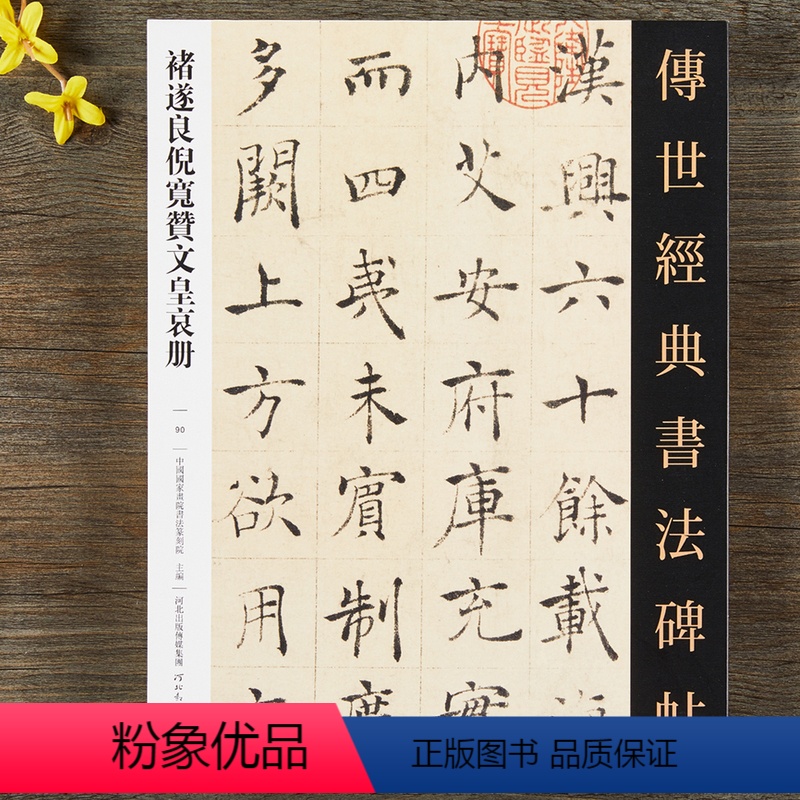 傳世經典書法碑帖
漢興六十餘載海
内艾安府庫充實
而四夷未賓制度
多闕上方欲用
褚遂良倪寬贊文皇哀册
90
中國國家畫院書法篆刻院 主編
河北出版傳媒集團
粉象优品
正版图书 品质保证